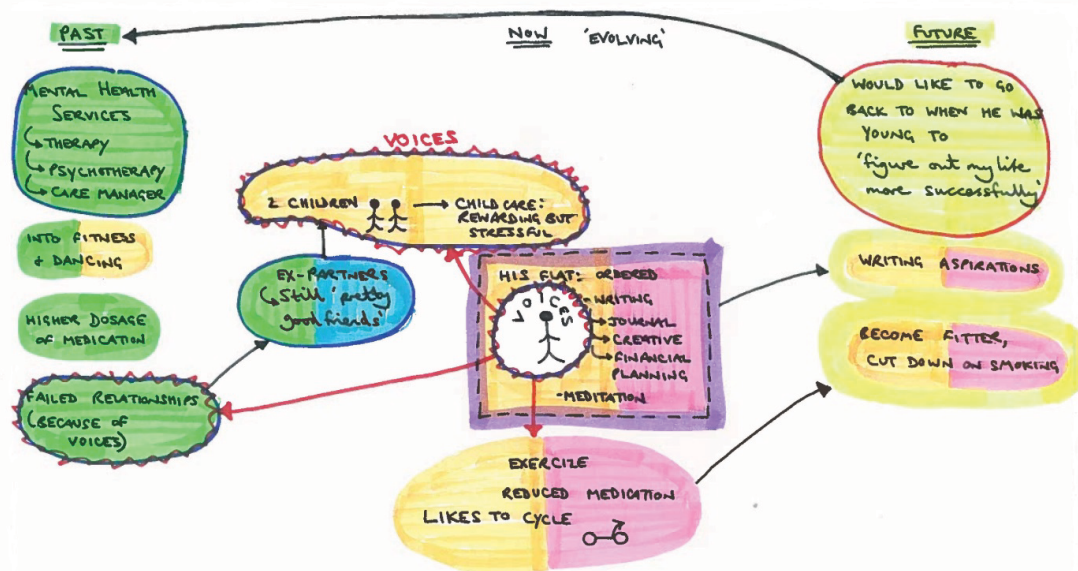 PAST
NOW 'EVOLVING'
FUTURE
MENTAL HEALTH
SERVICES
THERAPY
PSYCHOTHERAPY
CARE MANAGER
INTO FITNESS
+ DANCING
HIGHER DOSAGE
OF MEDICATION
FAILED RELATIONSHIPS
(BECAUSE OF
VOICES)
VOICES
2 CHILDREN
CHILD CARE:
REWARDING BUT
STRESSFUL
EX-PARTNERS
Still 'pretty
good friends'
HIS FLAT: ORDERED
VOICES
-WRITING
JOURNAL
CREATIVE
FINANCIAL
PLANNING
-MEDITATION
EXERCIZE
REDUCED MEDICATION
LIKES TO CYCLE
WOULD LIKE TO GO
BACK TO WHEN HE WAS
YOUNG TO
'figure out my life
more successfully'
WRITING ASPIRATIONS
BECOME FITTER,
CUT DOWN ON SMOKING